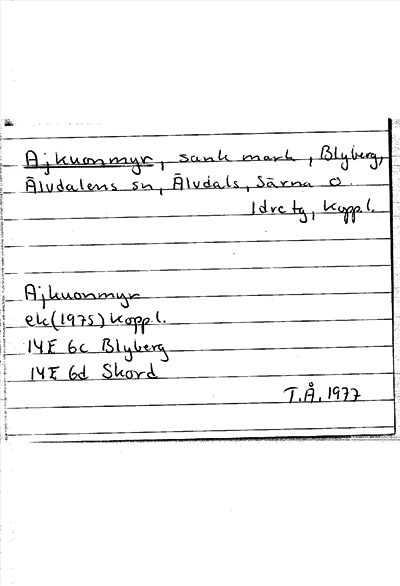 Ajkuonmyr, sank mark, Blyberg,
Älvdalens sn, Älvdals, Särna o.
Idre tg, Kopp.l.
Ajkuonmyr
ek(1975) Kopp.l.
14E 6c Blyberg
14E 6d Skord
T.Å. 1977